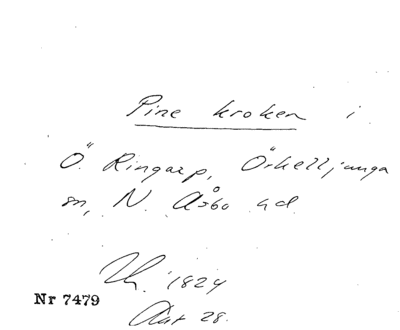 Pine kroken i
Ö. Ringarp, Örkelljunga
sn, N. Åsbo hd.
1824
Nr 7479
28.